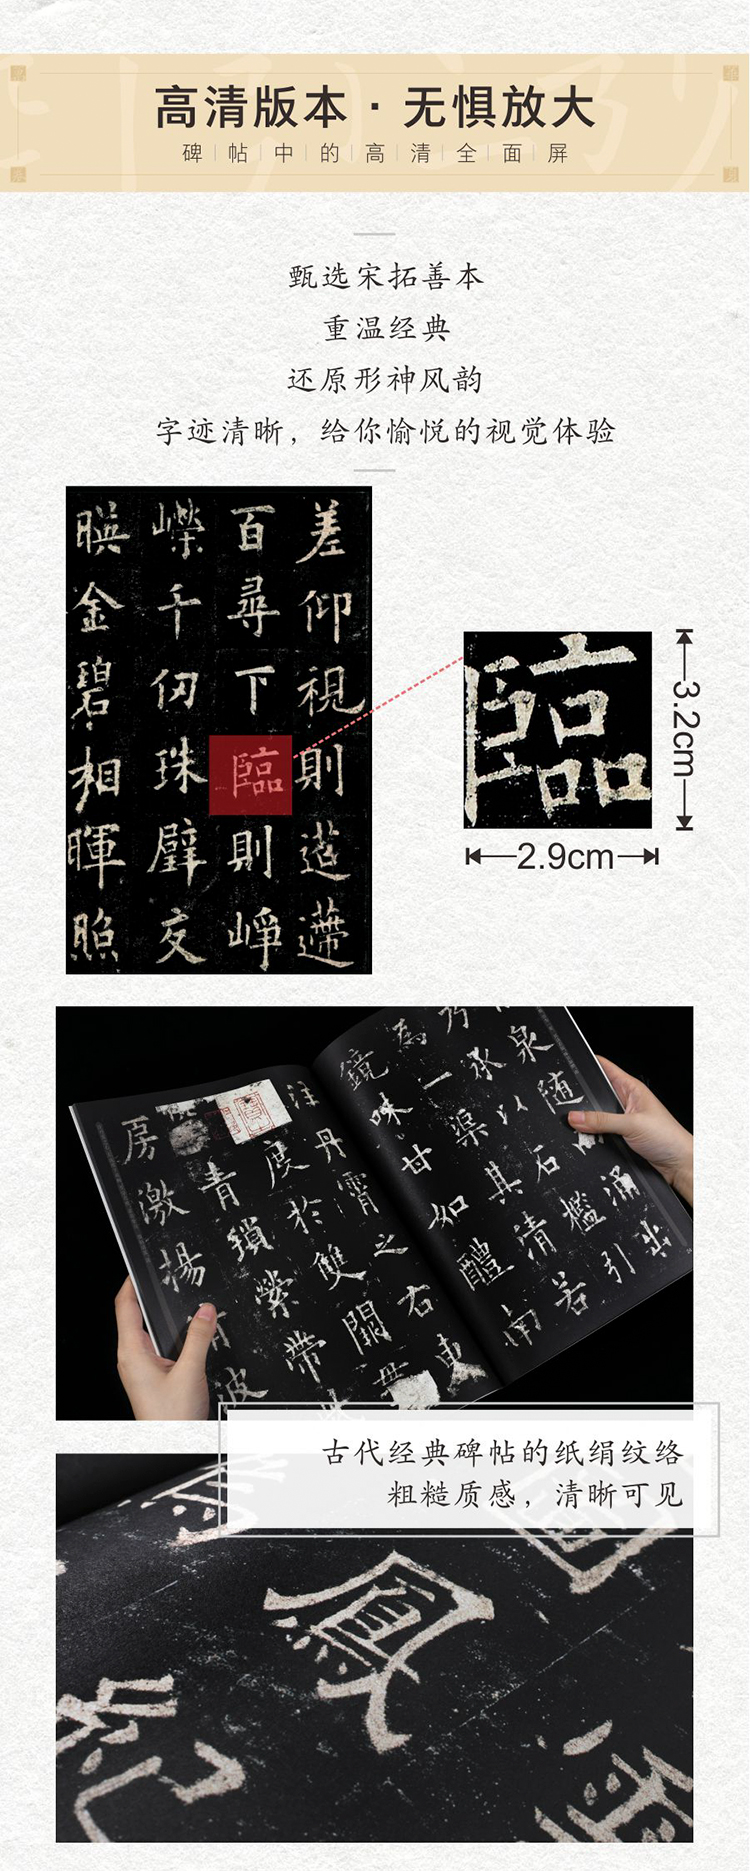 高清版本·无惧放大
碑帖中的高清全面屏
甄选宋拓善本
重温经典
还原形神风韵
字迹清晰，给你愉悦的视觉体验
差仰視則迢遰
百尋下臨則崢
嶸千仞珠壁交
暎金碧相暉照
臨
3.2cm
2.9cm
泉随涌出
乃承以石檻引
為一渠其清若
鏡味甘如醴南
注丹霄之右東
度於雙闕貫
青瑣縈帶
房激揚清波
古代经典碑帖的纸绢纹络
粗糙质感，清晰可见
圖
鳳
紀